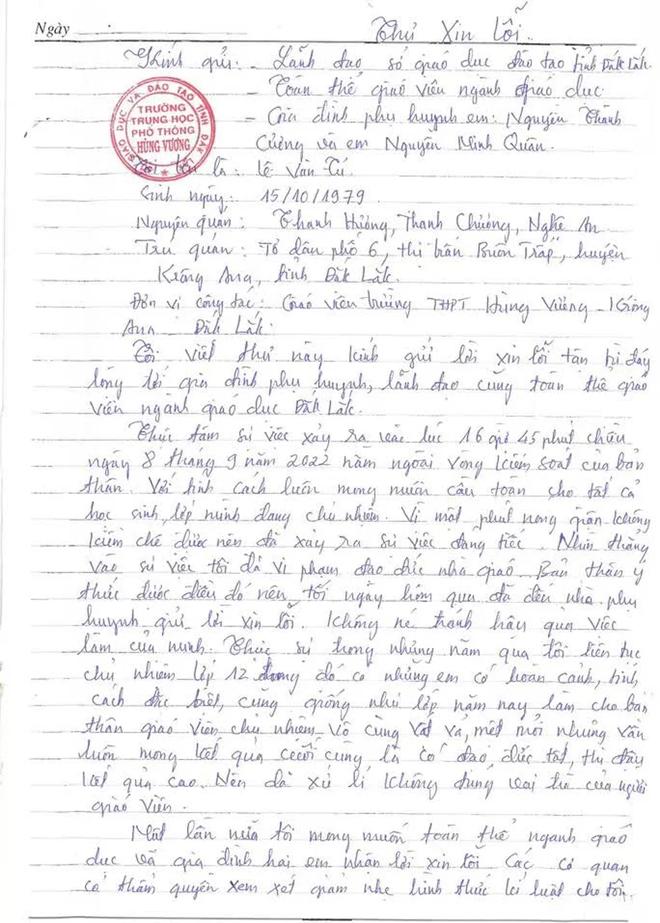 Ngày
Thư Xin Lỗi.
Kính gửi: - Lãnh đạo sở giáo dục đào tạo tỉnh Đăk Lăk.
- Toàn thể giáo viên ngành giáo dục.
- Gia đình phụ huynh em: Nguyễn Thành
Cường và em Nguyễn Minh Quân.
SỞ GIÁO DỤC VÀ ĐÀO TẠO TỈNH ĐĂK LĂK
TRƯỜNG
TRUNG HỌC
PHỔ THÔNG
HÙNG VƯƠNG
Tôi tên là: Lê Văn Tú
Sinh ngày: 15/10/1979
Nguyên quán: Thanh Hương, Thanh Chương, Nghệ An
Trú quán: Tổ dân phố 6, thị trấn Buôn Trấp, huyện
Krông Ana, tỉnh Đăk Lăk.
Đơn vị công tác: Giáo viên trường THPT Hùng Vương - Krông
Ana - Đăk Lăk.
Tôi viết thư này kính gửi lời xin lỗi tận từ đáy
lòng tới gia đình phụ huynh, lãnh đạo cùng toàn thể giáo
viên ngành giáo dục Đăk Lăk.
Thực tâm sự việc xảy ra vào lúc 16 giờ 45 phút chiều
ngày 8 tháng 9 năm 2022 nằm ngoài vòng kiểm soát của bản
thân. Với tính cách luôn mong muốn cầu toàn cho tất cả
học sinh, lớp mình đang chủ nhiệm. Vì một phút nóng giận không
kiềm chế được nên đã xảy ra sự việc đáng tiếc. Nhìn thẳng
vào sự việc tôi đã vi phạm đạo đức nhà giáo. Bản thân ý
thức được điều đó nên tối ngày hôm qua đã đến nhà phụ
huynh gửi lời xin lỗi. Không né tránh hậu quả việc
làm của mình. Thực sự trong những năm qua tôi liên tục
chủ nhiệm lớp 12 trong đó có những em có hoàn cảnh, tính
cách đặc biệt, cũng giống như lớp năm nay làm cho bản
thân giáo viên chủ nhiệm vô cùng vất vả, mệt mỏi nhưng vẫn
luôn mong kết quả cuối cùng là có đạo đức tốt, thi đậu
kết quả cao. Nên đã xử lí không đúng vai trò của người
giáo viên.
Một lần nữa tôi mong muốn toàn thể ngành giáo
dục và gia đình hai em nhận lời xin lỗi. Các cơ quan
có thẩm quyền xem xét giảm nhẹ hình thức kỉ luật cho tôi.